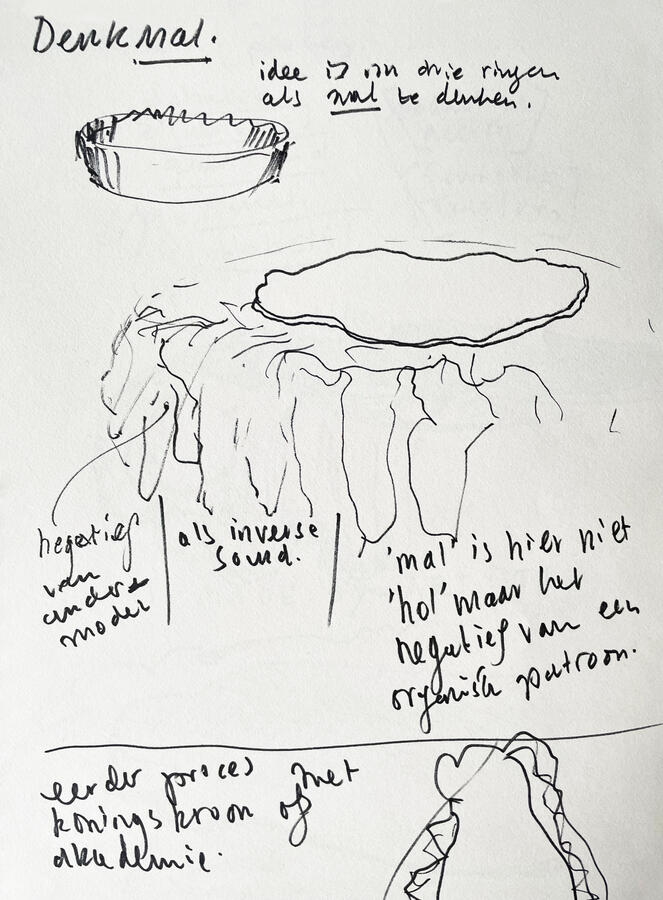 Denkmal.
idee is om drie ringen
als mal te denken.
negatief
van
andere
model
als inverse
'mal' is hier niet
'hol' maar het
negatief van een
organisch patroon.
eerder proces met
koningskroon of
akademie.